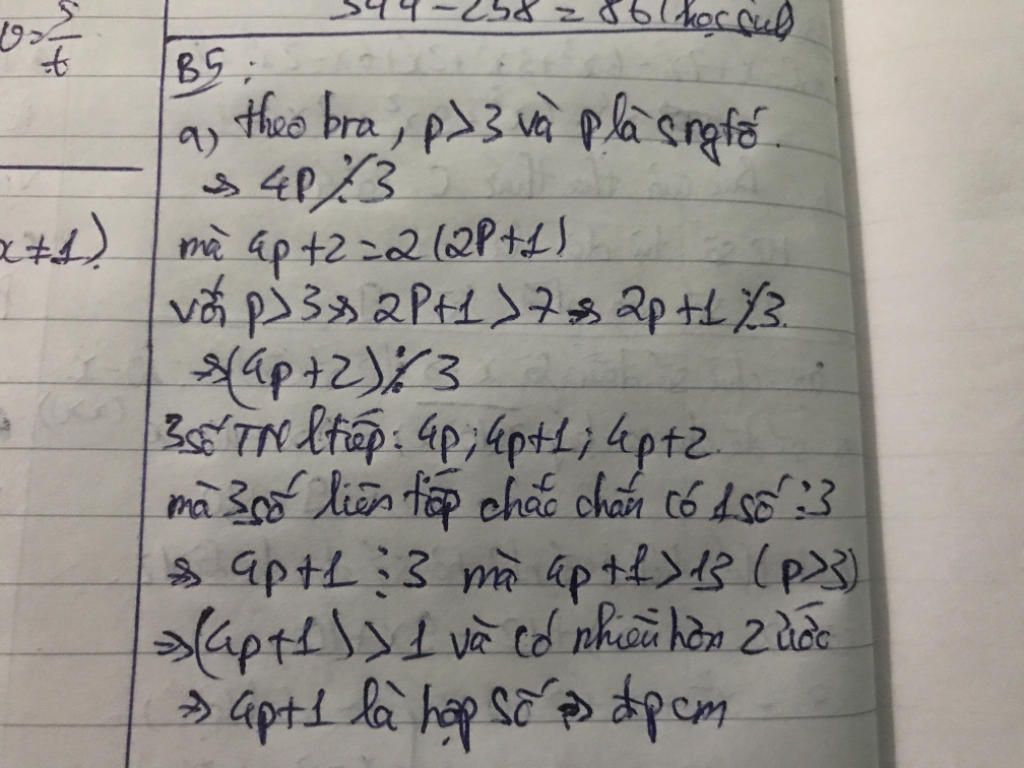 544 - 258 = 86 (học sinh)
v = s/t
B5:
a, theo bra, p > 3 và p là s ngtố.
=> 4P ⋮̸ 3
x ≠ 1)
mà 4p + 2 = 2 (2P + 1)
với p > 3 => 2P + 1 > 7 => 2p + 1 ⋮̸ 3.
=> (4p + 2) ⋮̸ 3
3 số TN ltiếp: 4p; 4p+1; 4p+2.
mà 3 số liên tiếp chắc chắn có 1 số ⋮ 3
=> 4p + 1 ⋮ 3 mà 4p + 1 > 13 (p > 3)
=> (4p + 1) > 1 và có nhiều hơn 2 ước
=> 4p+1 là hợp số => đpcm